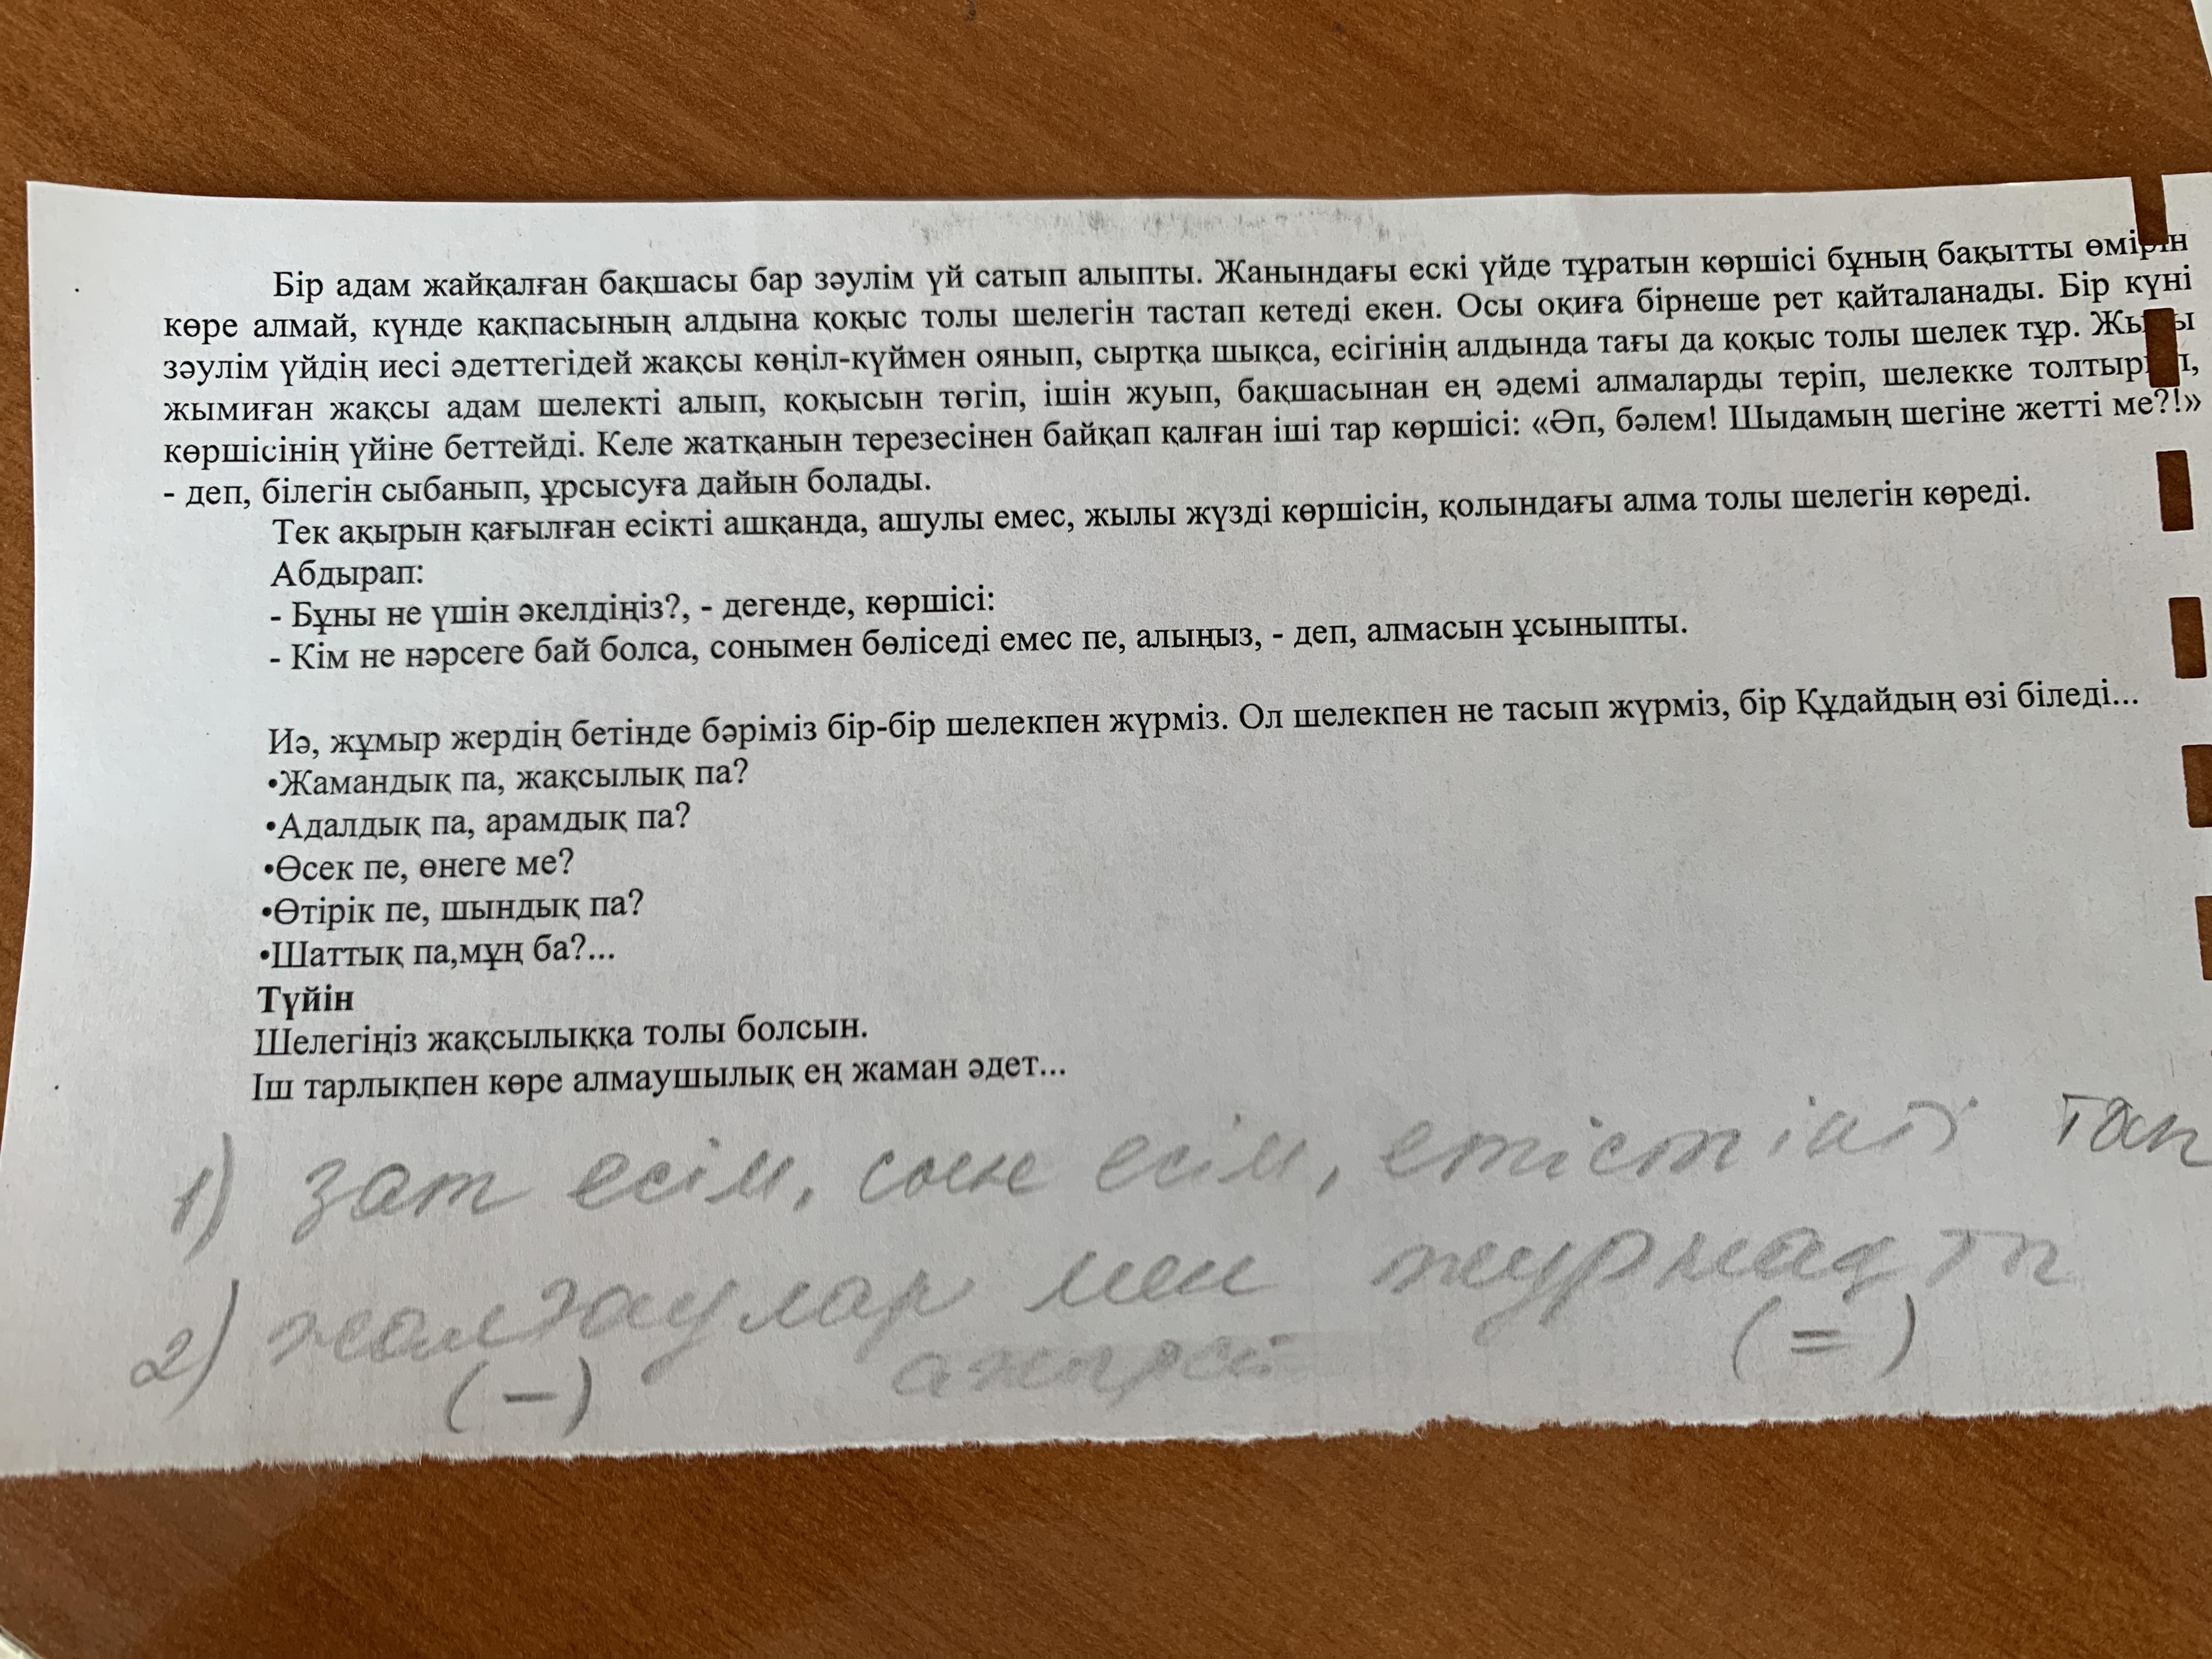 Бір адам жайқалған бақшасы бар зәулім үй сатып алыпты. Жанындағы ескі үйде тұратын көршісі бұның бақытты өмірін
көре алмай, күнде қақпасының алдына қоқыс толы шелегін тастап кетеді екен. Осы оқиға бірнеше рет қайталанады. Бір күні
зәулім үйдің иесі әдеттегідей жақсы көңіл-күймен оянып, сыртқа шықса, есігінің алдында тағы да қоқыс толы шелек тұр.
жымиған жақсы адам шелекті алып, қоқысын төгіп, ішін жуып, бақшасынан ең әдемі алмаларды теріп, шелекке толтырып,
көршісінің үйіне беттейді. Келе жатқанын терезесінен байқап қалған іші тар көршісі: «Әп, бәлем! Шыдамың шегіне жетті ме?!»
- деп, білегін сыбанып, ұрсысуға дайын болады.
Тек ақырын қағылған есікті ашқанда, ашулы емес, жылы жүзді көршісін, қолындағы алма толы шелегін көреді.
Абдырап:
- Бұны не үшін әкелдіңіз?, - дегенде, көршісі:
- Кім не нәрсеге бай болса, сонымен бөліседі емес пе, алыңыз, - деп, алмасын ұсыныпты.
Иә, жұмыр жердің бетінде бәріміз бір-бір шелекпен жүрміз. Ол шелекпен не тасып жүрміз, бір Құдайдың өзі біледі...
•Жамандық па, жақсылық па?
•Адалдық па, арамдық па?
•Өсек пе, өнеге ме?
•Өтірік пе, шындық па?
•Шаттық па,мұң ба?...
Түйін
Шелегіңіз жақсылыққа толы болсын.
Іш тарлықпен көре алмаушылық ең жаман әдет...
1) зат есім, сын есім, етістікті тап
2) жалғаулар мен журнақты
(-) ажырат (=)